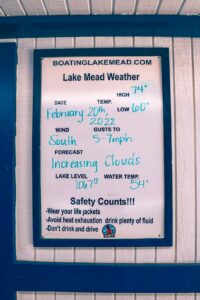 BOATINGLAKEMEAD.COM
Lake Mead Weather
HIGH 74°
DATE TEMP. LOW 60°
February 20th, 2022
WIND GUSTS TO
South 5-7mph
FORECAST
Increasing Clouds
LAKE LEVEL WATER TEMP.
1067' 54°
Safety Counts!!!
-Wear your life jackets
-Avoid heat exhaustion drink plenty of fluid
-Don't drink and drive